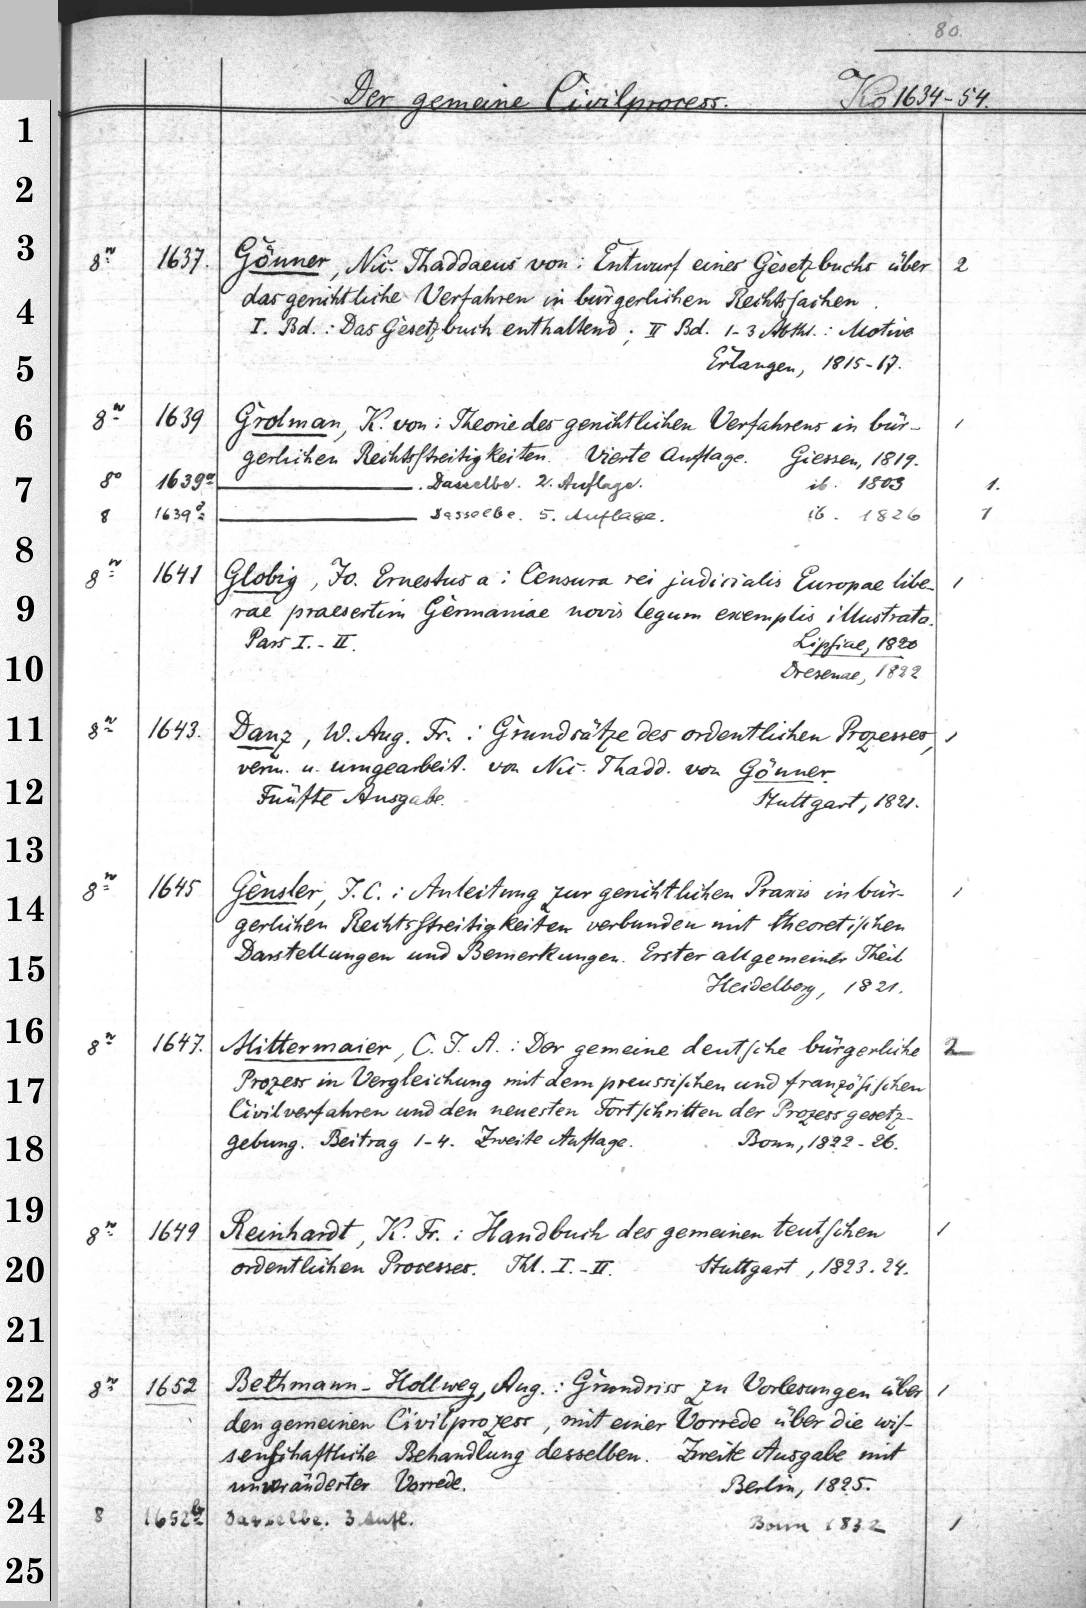 80.
Der gemeine Civilprocess. Ko 1634-54.
8º 1637. Gönner, Nic. Thaddaeus von: Entwurf eines Gesetzbuchs über 2
das gerichtliche Verfahren in bürgerlichen Rechtssachen.
I. Bd.: Das Gesetzbuch enthaltend; II Bd. 1-3 Abthl.: Motive
Erlangen, 1815-17.
8º 1639 Grolman, K. von: Theorie des gerichtlichen Verfahrens in bür- 1
gerlichen Rechtsstreitigkeiten. Vierte Auflage. Giessen, 1819.
8º 1639a . Dasselbe. 2. Auflage. ib. 1803 1.
8 1639 Dasselbe. 5. Auflage. ib. 1826 1
8º 1641 Globig, Jo. Ernestus a: Censura rei judicialis Europae libe- 1
rae praesertim Germaniae novis legum exemplis illustrata.
Pars I.-II. Lipsiae, 1820
Dresenae, 1822
8º 1643. Danz, W. Aug. Fr.: Grundsätze des ordentlichen Prozesses, 1
verm. u. umgearbeit. von Nic. Thadd. von Gönner.
Fünfte Ausgabe. Stuttgart, 1821.
8º 1645 Gensler, J. C.: Anleitung zur gerichtlichen Praxis in bür- 1
gerlichen Rechtsstreitigkeiten verbunden mit theoretischen
Darstellungen und Bemerkungen. Erster allgemeiner Theil
Heidelberg, 1821.
8º 1647. Mittermaier, C. J. A.: Der gemeine deutsche bürgerliche 2
Prozess in Vergleichung mit dem preussischen und französischen
Civilverfahren und den neuesten Fortschritten der Prozessgesetz-
gebung. Beitrag 1-4. Zweite Auflage. Bonn, 1822-26.
8º 1649 Reinhardt, K. Fr.: Handbuch des gemeinen teutschen 1
ordentlichen Processes. Thl. I.-II. Stuttgart, 1823.24.
8º 1652 Bethmann-Hollweg, Aug.: Grundriss zu Vorlesungen über 1
den gemeinen Civilprozess, mit einer Vorrede über die wis-
senschaftliche Behandlung desselben. Zweite Ausgabe mit
unveränderter Vorrede. Berlin, 1825.
8 1652b Dasselbe. 3 Aufl. Bonn 1832 1
1
2
3
4
5
6
7
8
9
10
11
12
13
14
15
16
17
18
19
20
21
22
23
24
25